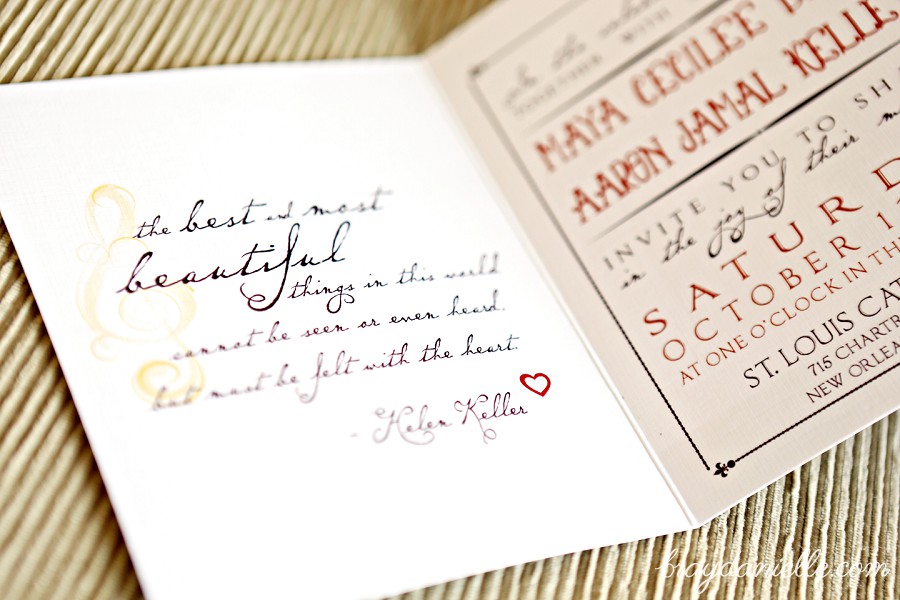 the best and most
beautiful
things in this world
cannot be seen or even heard,
but must be felt with the heart.
- Helen Keller
TOGETHER WITH
MAYA CECILEE
AARON JAMAL KELLE
INVITE YOU TO SH
in the joy of their
SATURD
OCTOBER 1
AT ONE O'CLOCK IN TH
ST. LOUIS CAT
715 CHARTR
NEW ORLEA
braydanielle.com